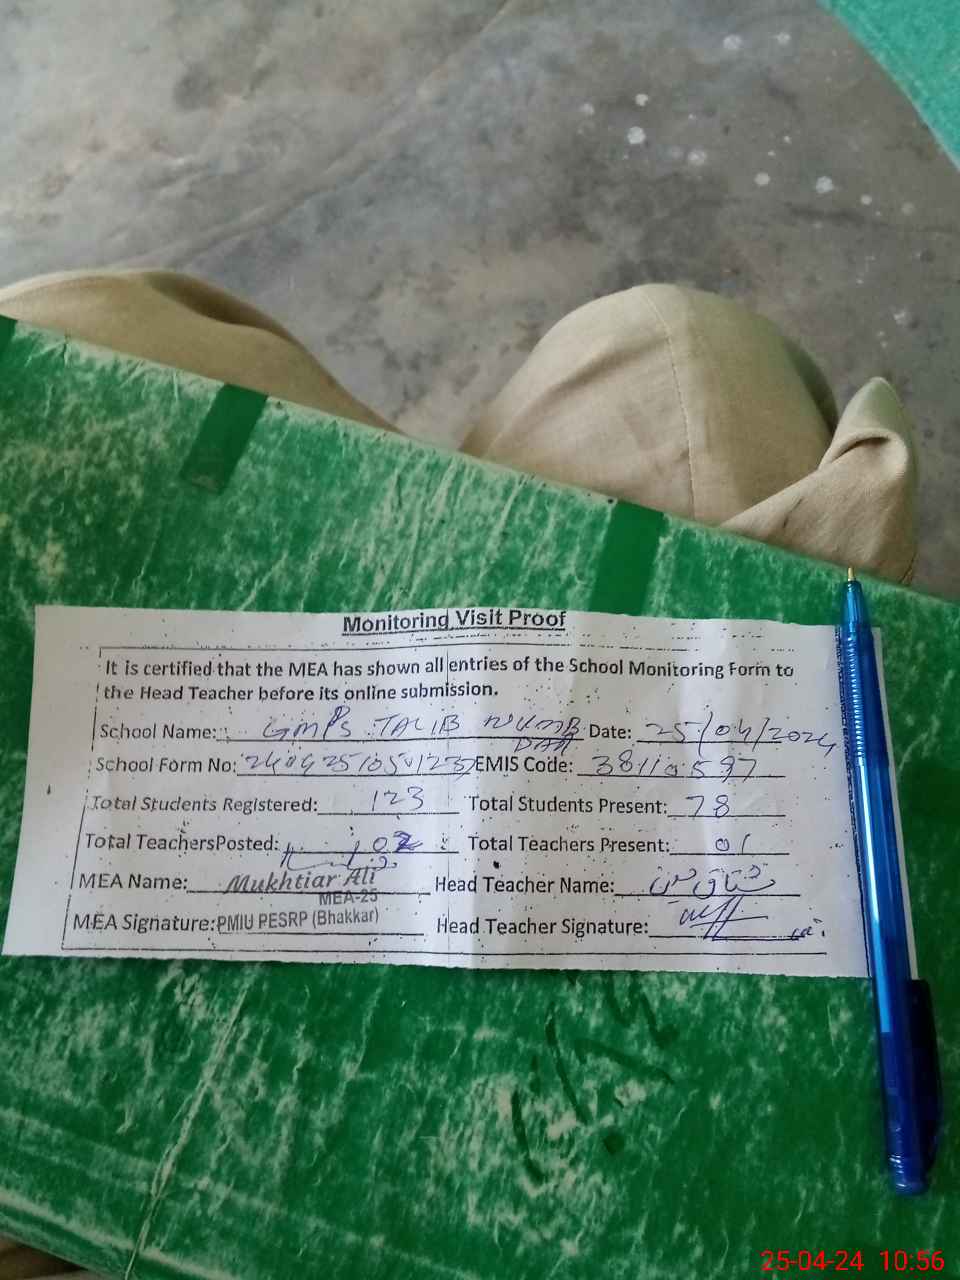 Monitoring Visit Proof
It is certified that the MEA has shown all entries of the School Monitoring Form to
the Head Teacher before its online submission.
School Name: GMPS TALIB Date: 25/04/2024
School Form No: EMIS Code: 38110597
Total Students Registered: 123 Total Students Present: 78
Total TeachersPosted: 02 Total Teachers Present: 01
MEA Name: Mukhtiar Ali Head Teacher Name:
MEA-25
MEA Signature: PMIU PESRP (Bhakkar) Head Teacher Signature:
25-04-24 10:56